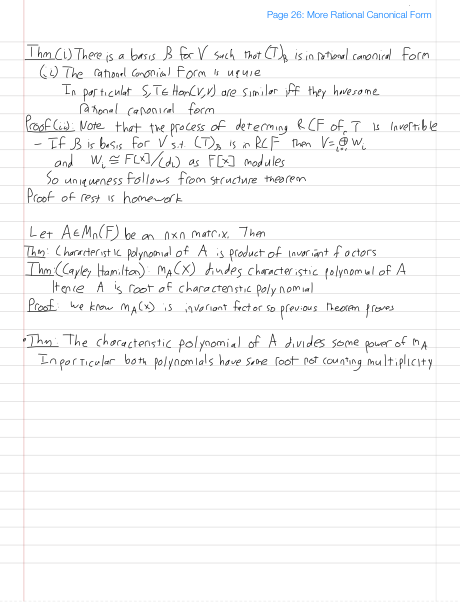 Page 26: More Rational Canonical Form
Thm (i) There is a basis B for V such that (T)_B is in rational canonical form
(ii) The rational canonical Form is uquie
In particular S,T ∈ Hom(V,V) are similar iff they have same
rational canonical form
Proof (ii): Note that the process of determing RCF of T is invertible
- If B is basis for V s.t. (T)_B is in RCF then V = ⊕ W_i
and W_i ≅ F[x]/(d_i) as F[x] modules
So uniqueness follows from structure theorem
Proof of rest is homework
Let A ∈ M_n(F) be an n×n matrix. Then
Thm: Characteristic polynomial of A is product of invariant factors
Thm: (Cayley Hamilton): m_A(x) divides characteristic polynomial of A
Hence A is root of characteristic polynomial
Proof: We know m_A(x) is invariant factor so previous theorem proves
• Thm: The characteristic polynomial of A divides some power of m_A
In particular both polynomials have same root not counting multiplicity